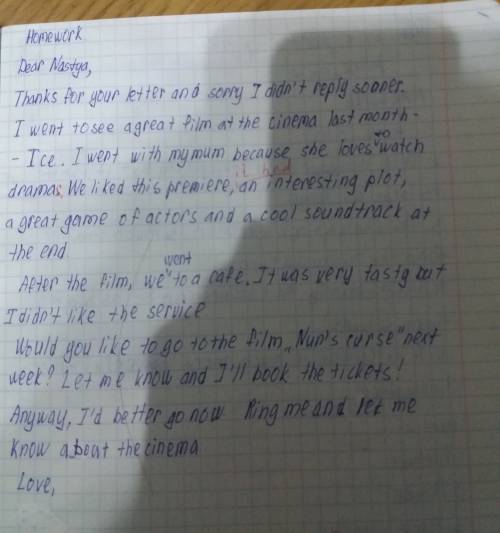 Homework
Dear Nastya,
Thanks for your letter and sorry I didn't reply sooner.
I went to see a great film at the cinema last month -
- Ice. I went with my mum because she loves to watch
dramas. We liked this premiere, it had an interesting plot,
a great game of actors and a cool soundtrack at
the end.
After the film, we went to a cafe. It was very tasty but
I didn't like the service
Would you like to go to the film „Nun's curse" next
week? Let me know and I'll book the tickets!
Anyway, I'd better go now Ring me and let me
know about the cinema
Love,